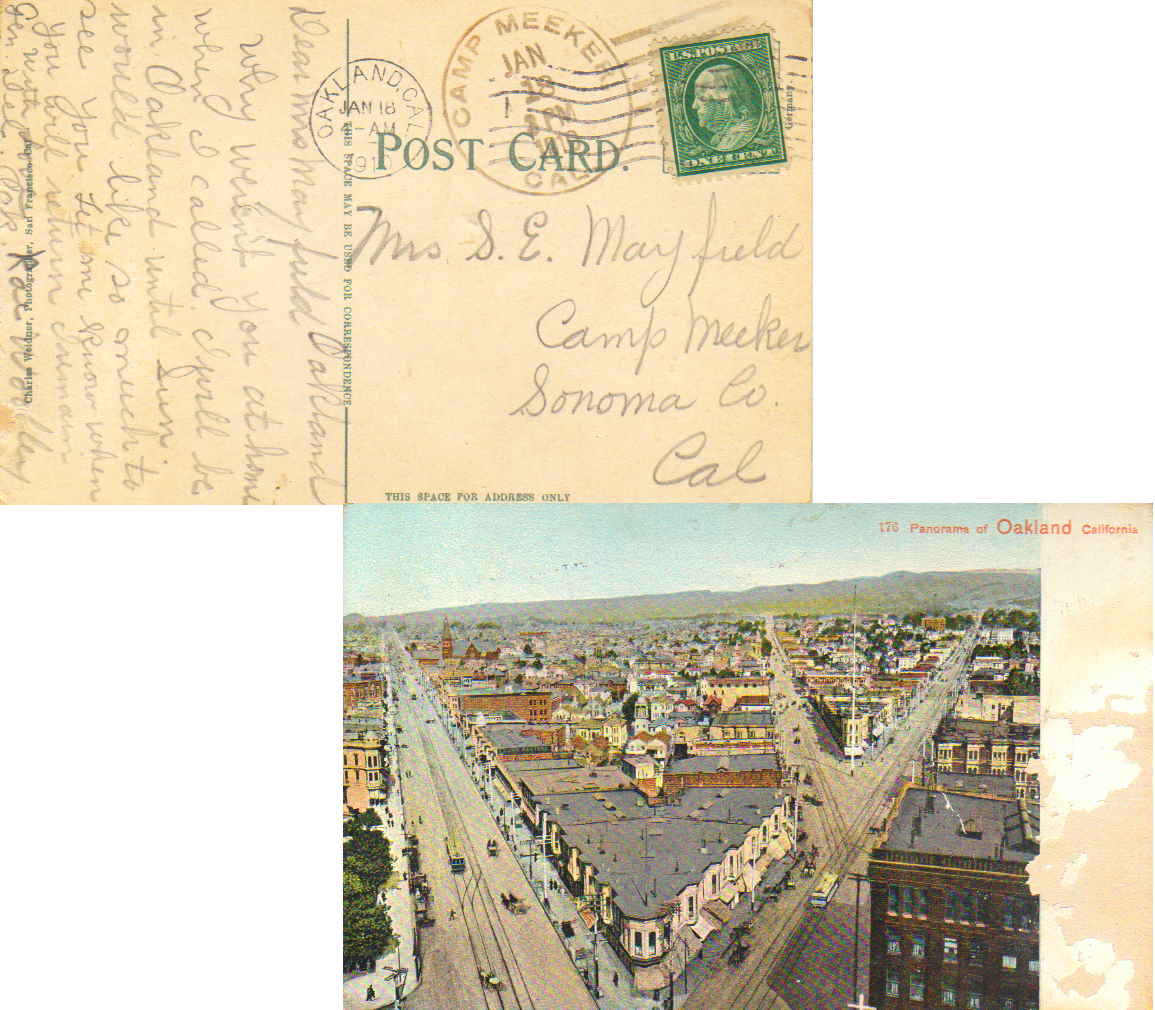 Dear Mrs Mayfield Oakland
Why weren't you at home
when I called. I will be
in Oakland until Sun.
would like so much to
see you. Let me know when
you will return
Charles Weidner, Photographer, San Francisco Cal.
THIS SPACE MAY BE USED FOR CORRESPONDENCE
OAKLAND, CAL.
JAN 18
-AM
191
CAMP MEEKER
JAN
18
CAL.
U.S. POSTAGE
ONE CENT
Germany.
POST CARD.
Mrs S. E. Mayfield
Camp Meeker
Sonoma Co.
Cal
THIS SPACE FOR ADDRESS ONLY
176 Panorama of Oakland California